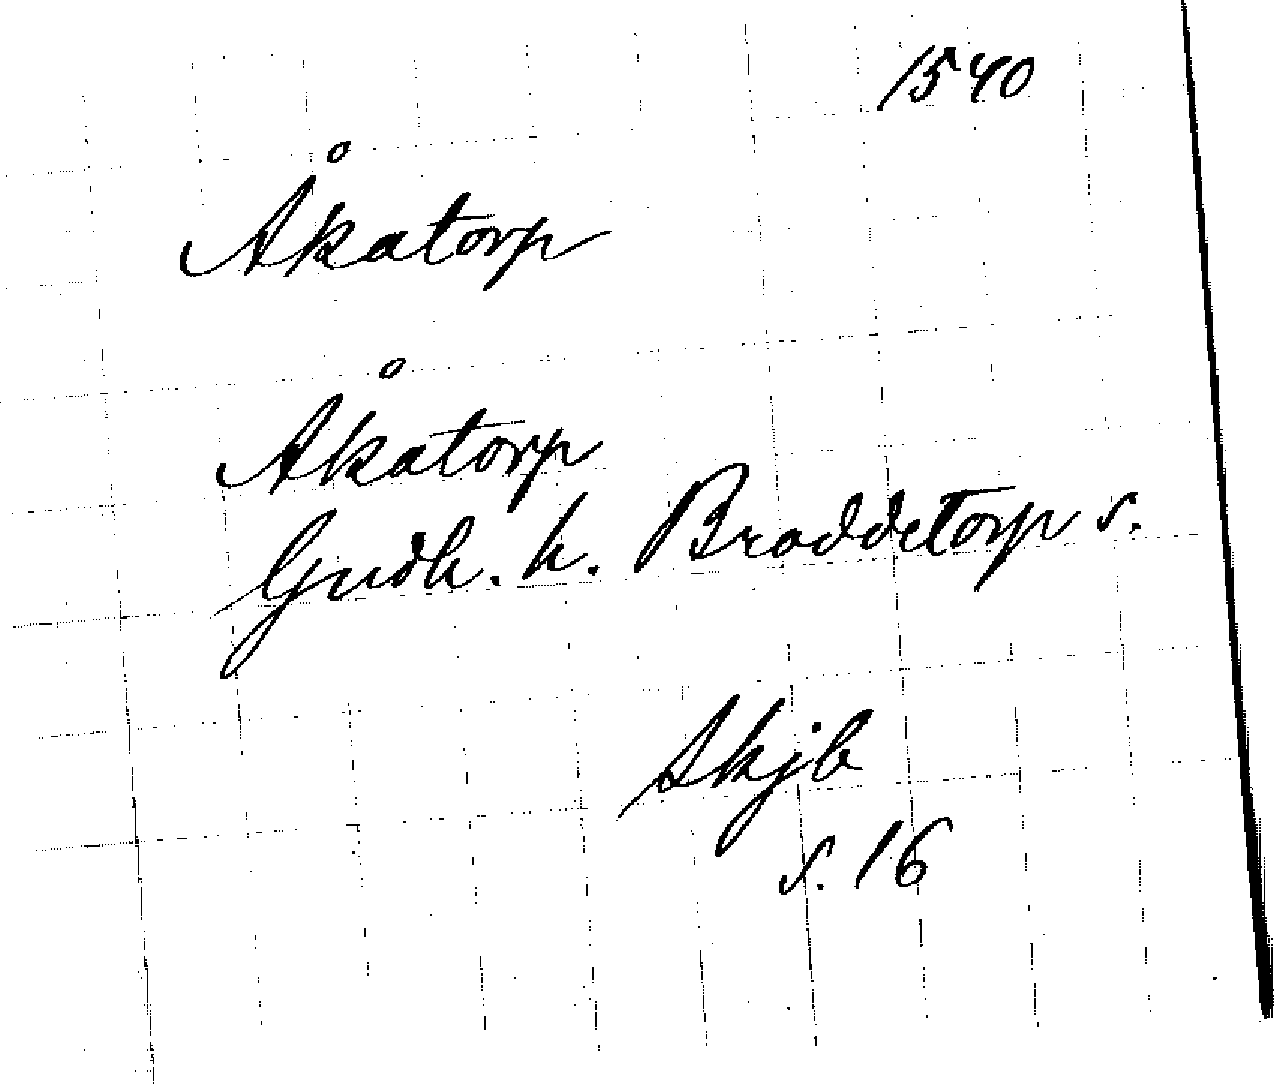 1540
Åkatorp
Åkatorp
Gudh. h. Broddetorp s.
Skjb
s. 16